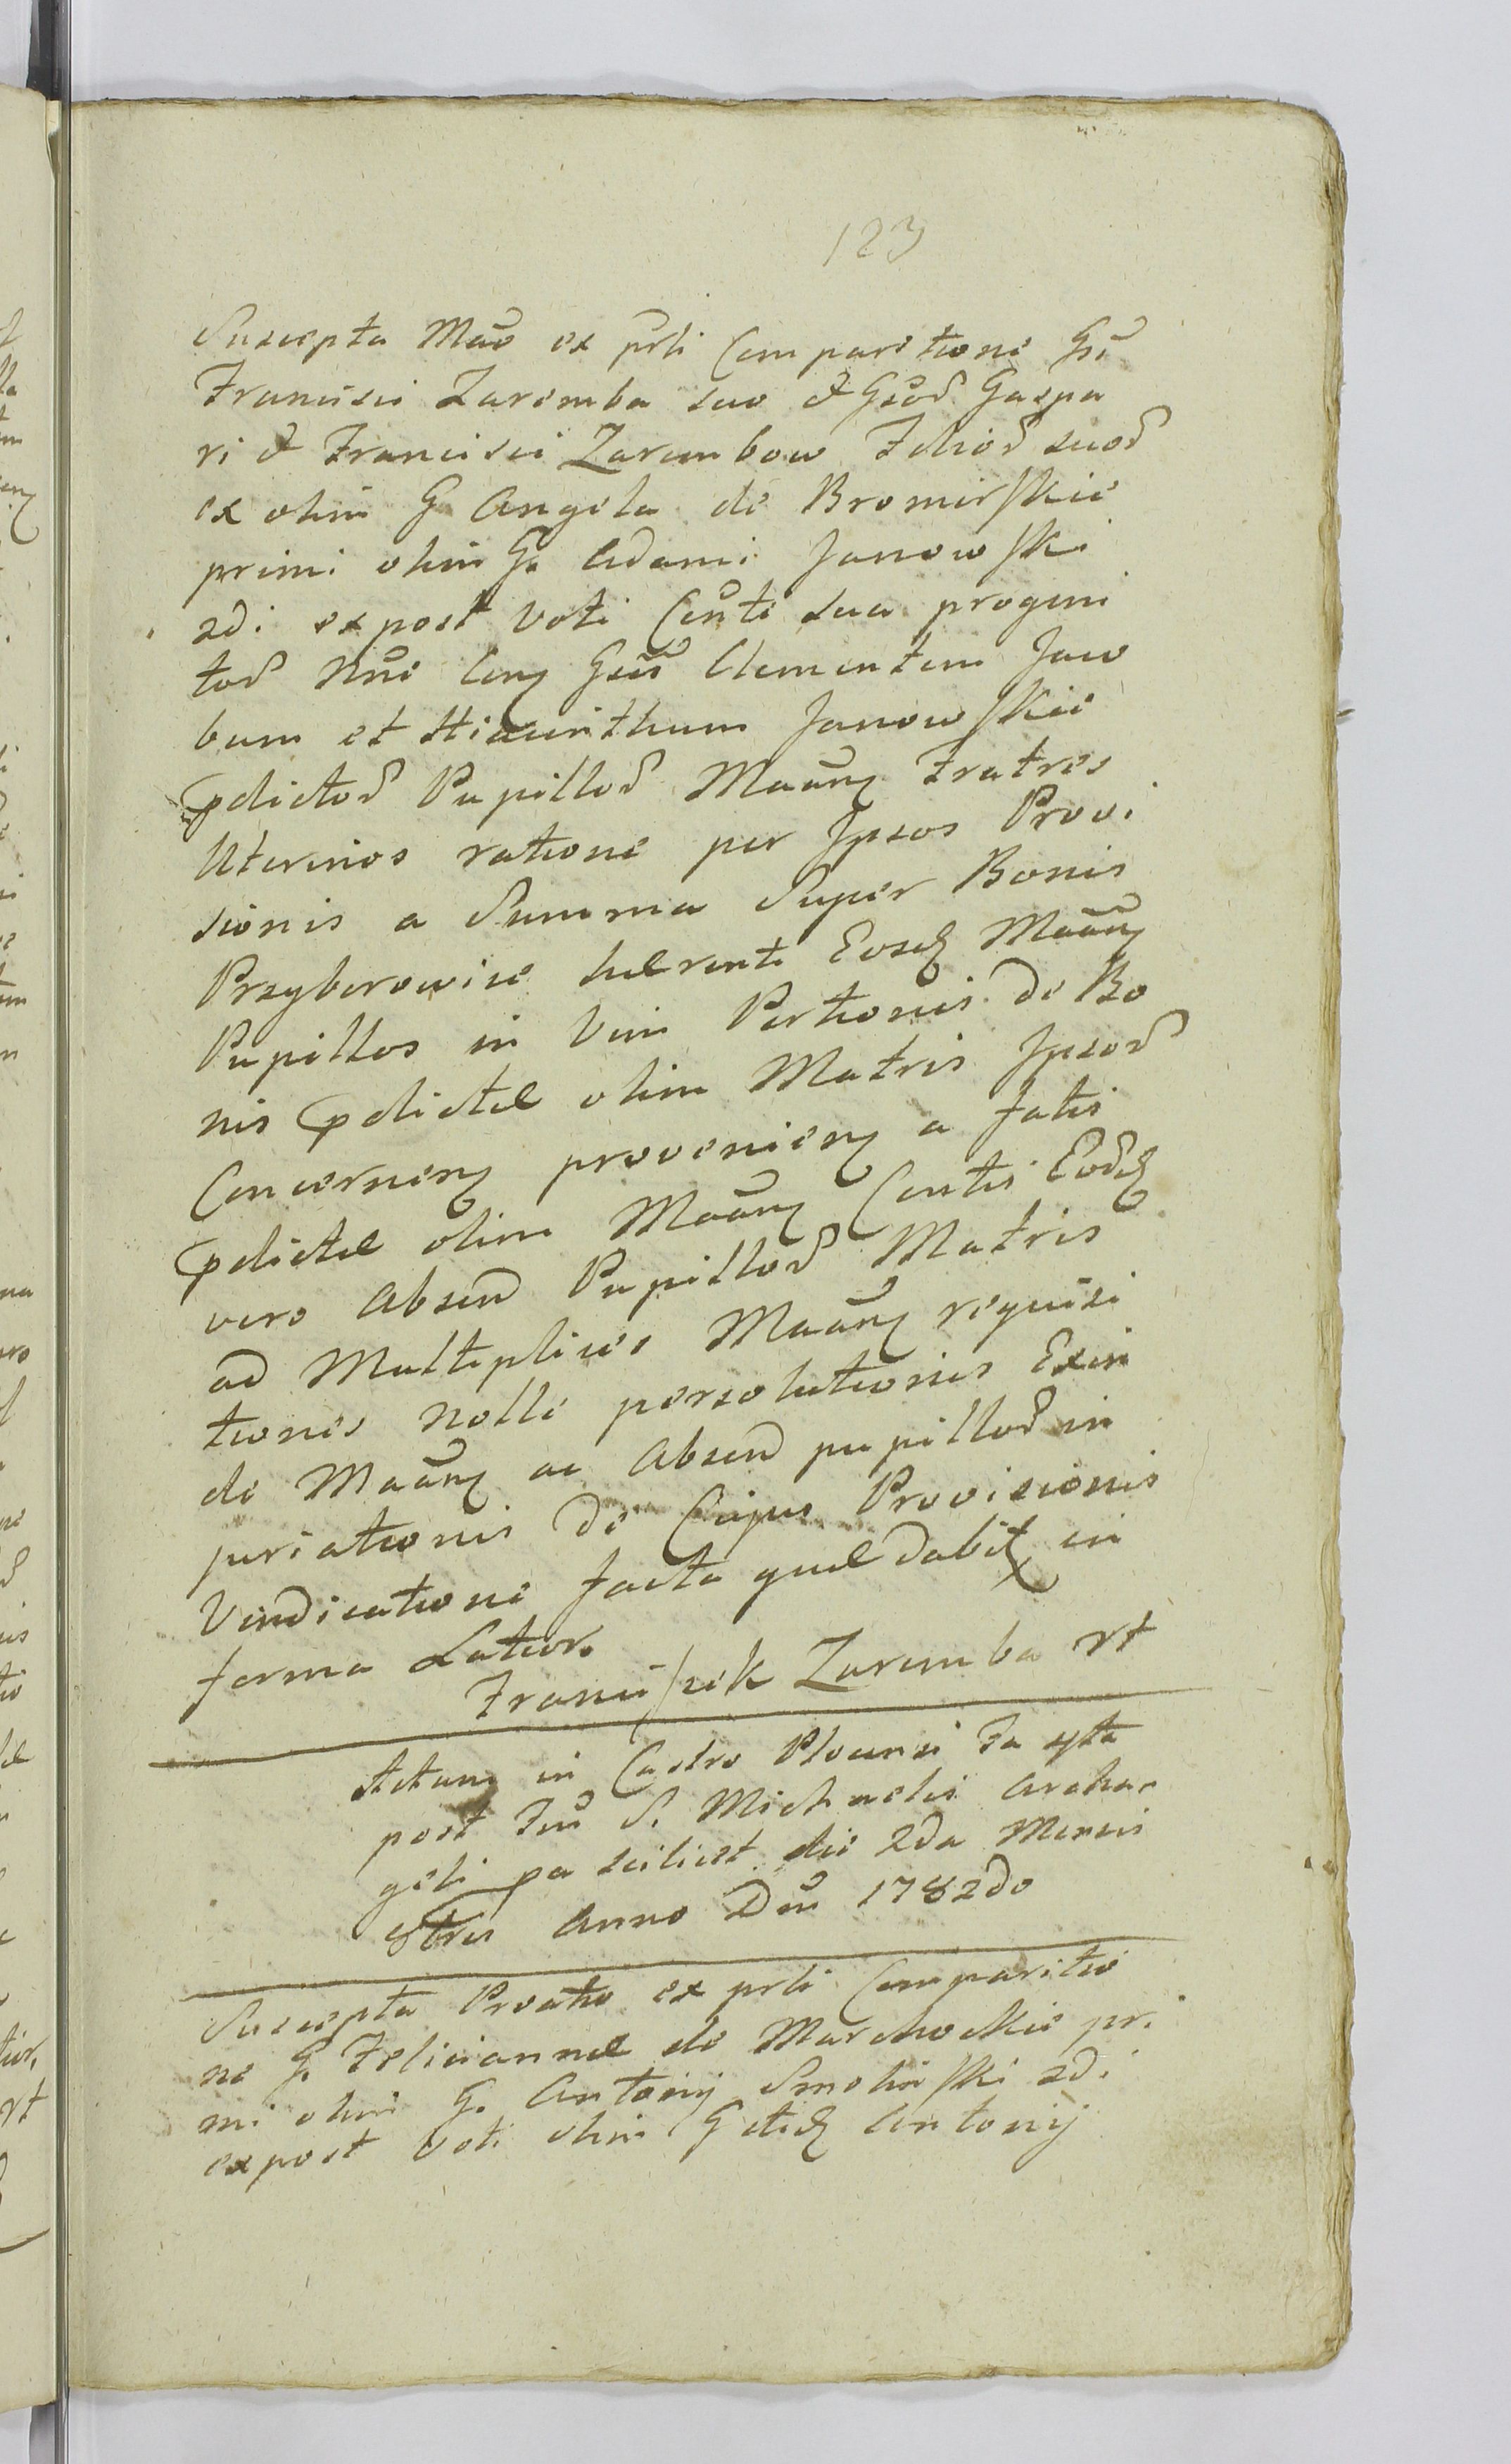 123
Suscepta Mão ex prli Comparitione Gsi
Francisci Zaremba suo & Gsoꝝ Gaspa
ri & Francisci Zarembow Filioꝝ suoꝝ
ex olim G. Angela de Bromirskie
primi olim G. Adami Janowski
2di expost voti Conte sua progeni
toꝝ Nũc Conꝫ Gsos Clementem Jaco
bum et Hiacinthum Janowskie
pdictoꝝ Pupilloꝝ Maanꝫ Fratres
Uterinos ratione per Ipsos Provi
sionis a Summa Super Bonis
Przyborowice hærente Eosdꝫ Maanꝫ
Pupillos in Vim Portionis de Bo
nis pdictæ olim Matris Ipsoꝝ
Concernenꝫ provenienꝫ a fatis
pdictæ olim Maanꝫ Contis Eodꝫ
vero Absen Pupilloꝝ Matris
ad Multiplices Maanꝫ requisi
tiones Nolle persolutionis Exin
de Maanꝫ ac Absen pupilloꝝ in
juriationis de Cujus Provisionis
Vindicatione facta quæ dabitꝫ in
forma Latior.
Franciszek Zaremba rt
Actum in Castro Plocensi Fa 4ta
post Fm S. Michaelis Archan
geli pa scilicet die 2da Mensis
8bris Anno Dni 1782do
Suscepta Proatio ex prli Comparitio
ne G. Feliciannæ de Marchockie pri
mi olim G. Antonij Smolinski 2di
expost voti olim G etiꝫ Antonij